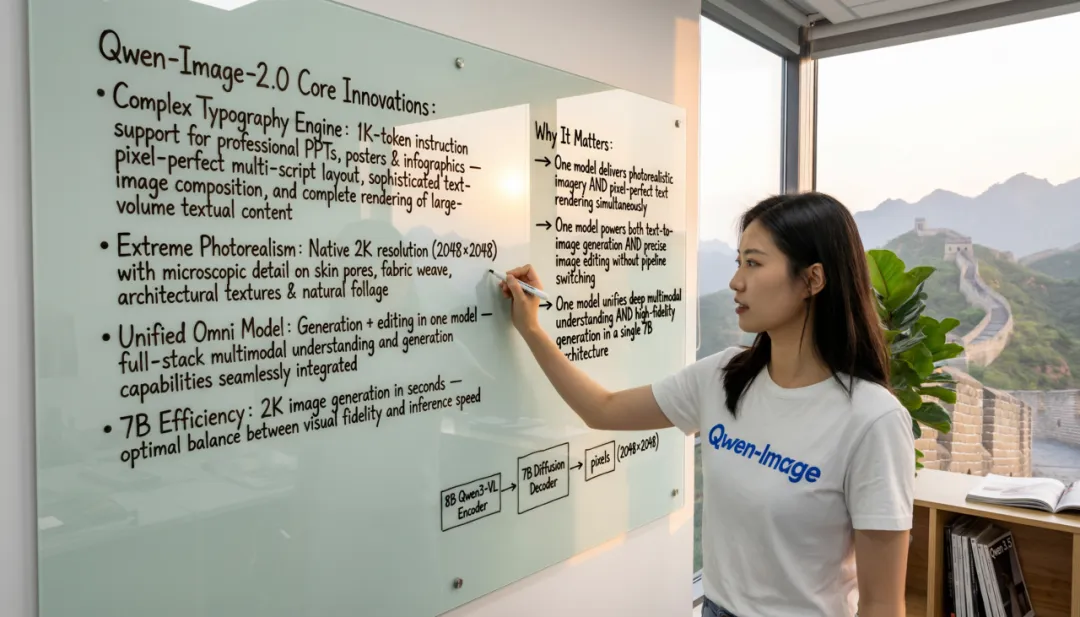 Qwen-Image-2.0 Core Innovations:
• Complex Typography Engine: 1K-token instruction
support for professional PPTs, posters & infographics —
pixel-perfect multi-script layout, sophisticated text-
image composition, and complete rendering of large-
volume textual content
• Extreme Photorealism: Native 2K resolution (2048×2048)
with microscopic detail on skin pores, fabric weave,
architectural textures & natural foliage
• Unified Omni Model: Generation + editing in one model —
full-stack multimodal understanding and generation
capabilities seamlessly integrated
• 7B Efficiency: 2K image generation in seconds —
optimal balance between visual fidelity and inference speed
Why It Matters:
→ One model delivers photorealistic
imagery AND pixel-perfect text
rendering simultaneously
→ One model powers both text-to-
image generation AND precise
image editing without pipeline
switching
→ One model unifies deep multimodal
understanding AND high-fidelity
generation in a single 7B
architecture
8B Qwen3-VL
Encoder
→
7B Diffusion
Decoder
→
pixels
(2048×2048)
Qwen-Image
Qwen 3.5